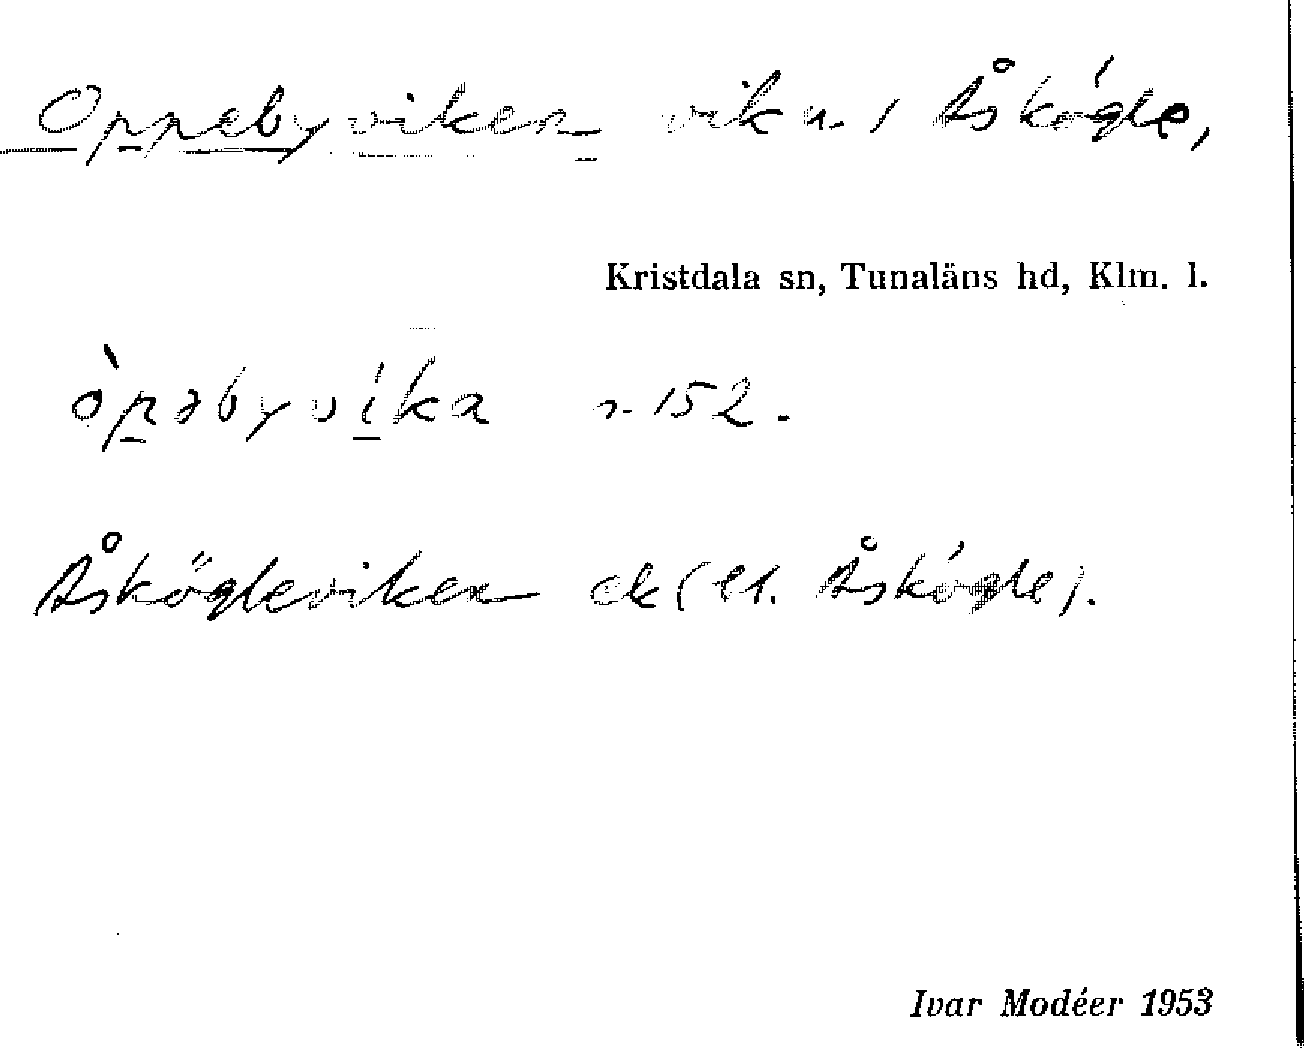 Oppebyviken vik n. i Åskögle,
Kristdala sn, Tunaläns hd, Klm. l.
òpəbyvíka s. 152.
Åskögleviken ek (el. Åskögle).
Ivar Modéer 1953